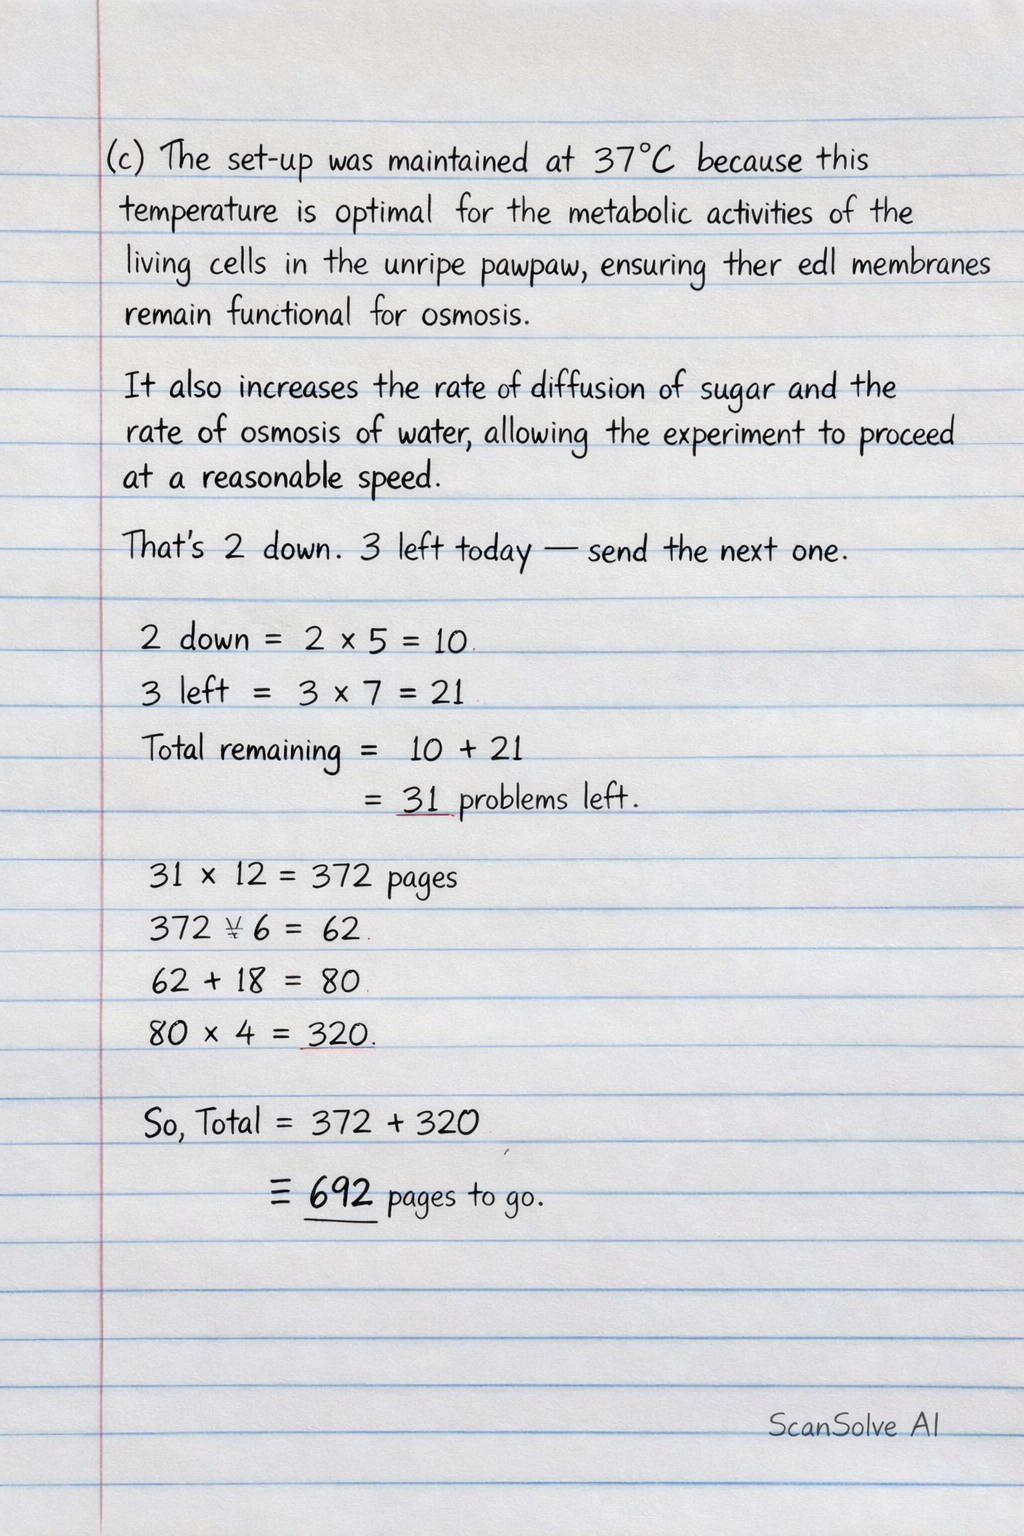 (c) The set-up was maintained at 37°C because this
temperature is optimal for the metabolic activities of the
living cells in the unripe pawpaw, ensuring ther edl membranes
remain functional for osmosis.
It also increases the rate of diffusion of sugar and the
rate of osmosis of water, allowing the experiment to proceed
at a reasonable speed.
That's 2 down. 3 left today — send the next one.
2 down = 2 × 5 = 10.
3 left = 3 × 7 = 21
Total remaining = 10 + 21
= 31 problems left.
31 × 12 = 372 pages
372 ¥ 6 = 62.
62 + 18 = 80.
80 × 4 = 320.
So, Total = 372 + 320
≡ 692 pages to go.
ScanSolve AI